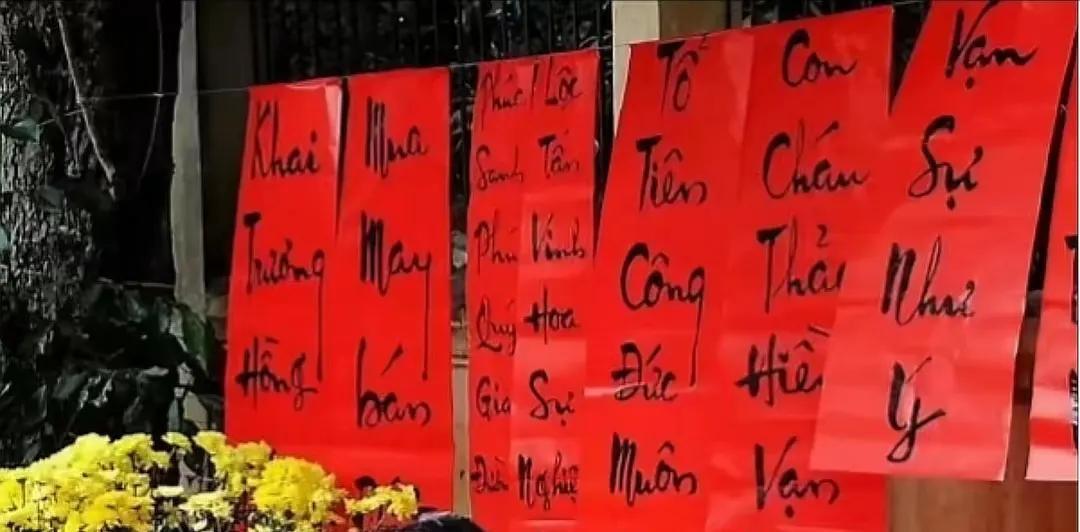 Khai Trương Hồng
Mua May bán
Phúc Sanh Phú Quý Gia
Lộc Tấn Vinh Hoa Sự Nghiệp
Tổ Tiên Công Đức Muôn
Con Cháu Thảo Hiền Vạn
Vạn Sự Như Ý